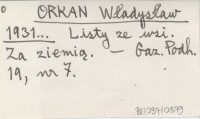 ORKAN Władysław
1931... Listy ze wsi.
Za ziemią. — Gaz. Podh.
19, nr 7.